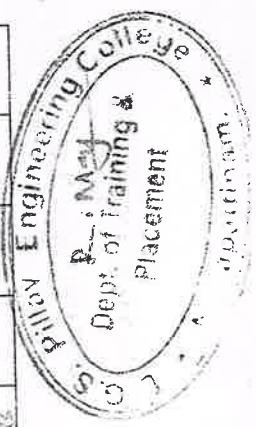 E.G.S. Pillay Engineering College
Dept. of Training &
Placement